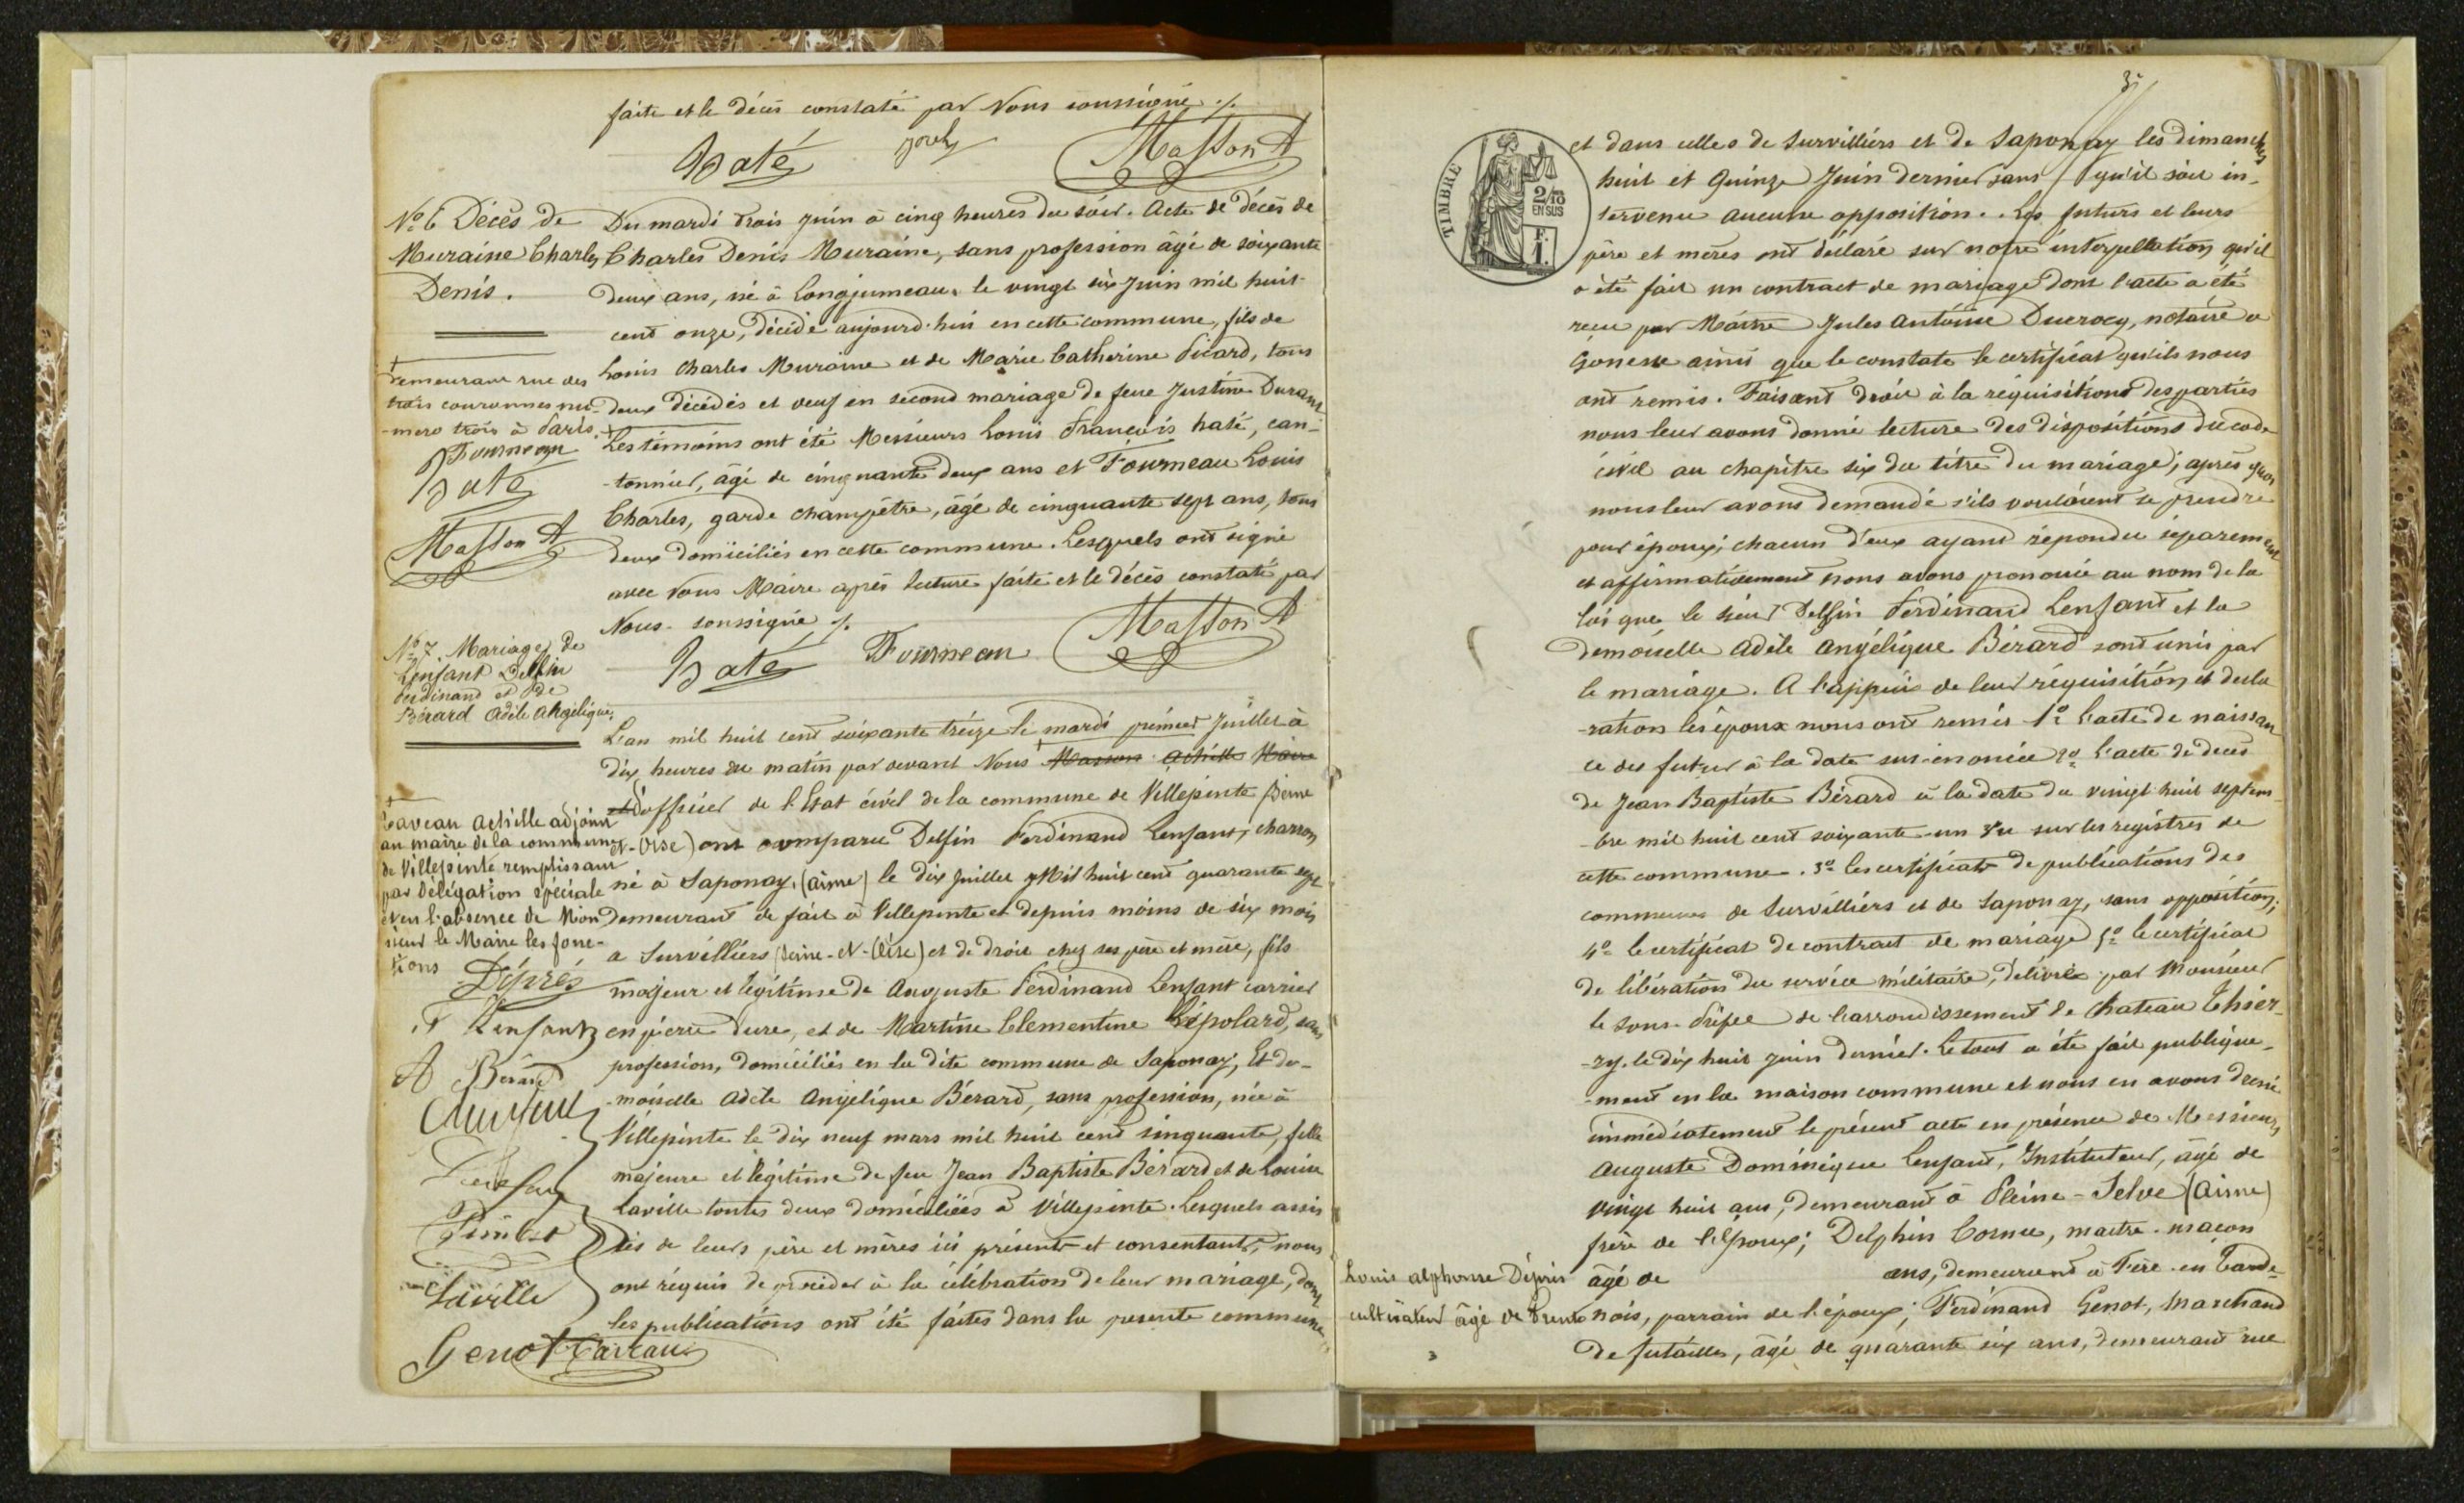 faite et le décès constaté par Nous soussigné ./.
Haté
Masson A
No. 6 Décès de
Muraine Charles
Denis.
Du mardi trois juin à cinq heures du soir. Acte de décès de
Charles Denis Muraine, sans profession âgé de soixante
deux ans, né à Longjumeau, le vingt six Juin mil huit
cent onze, décédé aujourd'hui en cette commune, fils de
Louis Charles Muraine et de Marie Catherine Picard, tous
deux décédés et veuf en second mariage de feue Justine Durant
Les témoins ont été Messieurs Louis François haté, can-
-tonnier, âgé de cinquante deux ans et Fourneau Louis
Charles, garde champêtre, âgé de cinquante sept ans, tous
deux domiciliés en cette commune. Lesquels ont signé
avec Nous Maire après lecture faite et le décès constaté par
Nous soussigné ./.
demeurant rue des
trois couronnes nu-
-mero trois à Paris.
Fourneau
Haté
Masson A
Haté Fourneau Masson A
No. 7. Mariage de
Lenfant Delfin
Ferdinand et de
Bérard Adèle Angélique.
L'an mil huit cent soixante treize le mardi premier Juillet à
dix heures du matin par devant Nous Masson Achille Maire
et d'officier de l'Etat civil de la commune de Villepinte (Seine
-et-Oise) ont comparu Delfin Ferdinand Lenfant, charron
né à Saponay, (Aisne) le dix juillet mil huit cent quarante sept
demeurant de fait à Villepinte et depuis moins de six mois
a Survilliers (Seine-et-Oise) et de droit chez ses père et mère, fils
majeur et légitime de Auguste Ferdinand Lenfant carrier
en pierre dure, et de Martine Clementine Lépolard, sans
profession, domiciliés en la dite commune de Saponay, Et de-
-moiselle Adèle Angélique Bérard, sans profession, née à
Villepinte le dix neuf mars mil huit cent cinquante, fille
majeure et légitime de feu Jean Baptiste Bérard et de Louise
Laville toutes deux domiciliées à Villepinte. Lesquels assis
tés de leurs père et mères ici présents et consentants, nous
ont réquis de procéder à la célébration de leur mariage, dont
les publications ont été faites dans la presente commune
Caveau Achille adjoint
au maire de la commune
de Villepinte remplissant
par délégation spéciale
et en l'absence de Mon
sieur le Maire les fonc-
tions
Déprés
Lenfant
A Bérard
Laville
Genot
et dans celles de Survilliers et de Saponay les dimanches
huit et Quinze Juin dernier sans qu'il soit in-
tervenu aucune opposition. Les futurs et leurs
père et mères ont déclaré sur notre interpellation qu'il
a été fait un contract de mariage dont l'acte a été
recu par Maitre Jules Antoine Ducrocq, notaire a
Gonesse ainsi que le constate le certificat qu'ils nous
ont remis. Faisant droit à la réquisitions des parties
nous leur avons donné lecture des dispositions du code
civil au chapitre six du titre du mariage; après quoi
nous leur avons demandé s'ils voulaient se prendre
pour époux; chacun d'eux ayant répondu séparement
et affirmativement nous avons prononcé au nom de la
loi que le sieur Delfin Ferdinand Lenfant et la
demoiselle Adèle Angélique Bérard sont unis par
le mariage. A l'appui de leur réquisition et decla
-ration les époux nous ont remis 1o l'acte de naissan
ce du futur à la date sus-enoncée 2o l'acte de decès
de Jean Baptiste Bérard à la date du vingt huit septem
-bre mil huit cent soixante-un vu sur les registres de
cette commune. 3o les certificats de publications des
communes de Survilliers et de Saponay, sans opposition;
4o le certificat de contrat de mariage 5o le certificat
de libération du service militaire, délivré par Monsieur
le Sous-Préfet de l'arrondissement de Chateau Thier-
-ry. le dix huit juin dernier. Le tout a été fait publique-
-ment en la maison commune et nous en avons dressé
immédiatement le présent acte en présence de Messieurs
Auguste Dominique Lenfant, Instituteur, âgé de
vingt huit ans, demeurant à Pleine-Selve (Aisne)
frère de l'époux; Delphin Cornu, maitre-maçon
âgé de ans, demeurant à Fère-en-Tarde-
nois, parrain de l'époux; Ferdinand Genot, Marchand
de futailles, âgé de quarante six ans, demeurant rue
Louis alphonse Déprés
cultivateur âgé de trente
TIMBRE
2/10
EN SUS
F.
1.